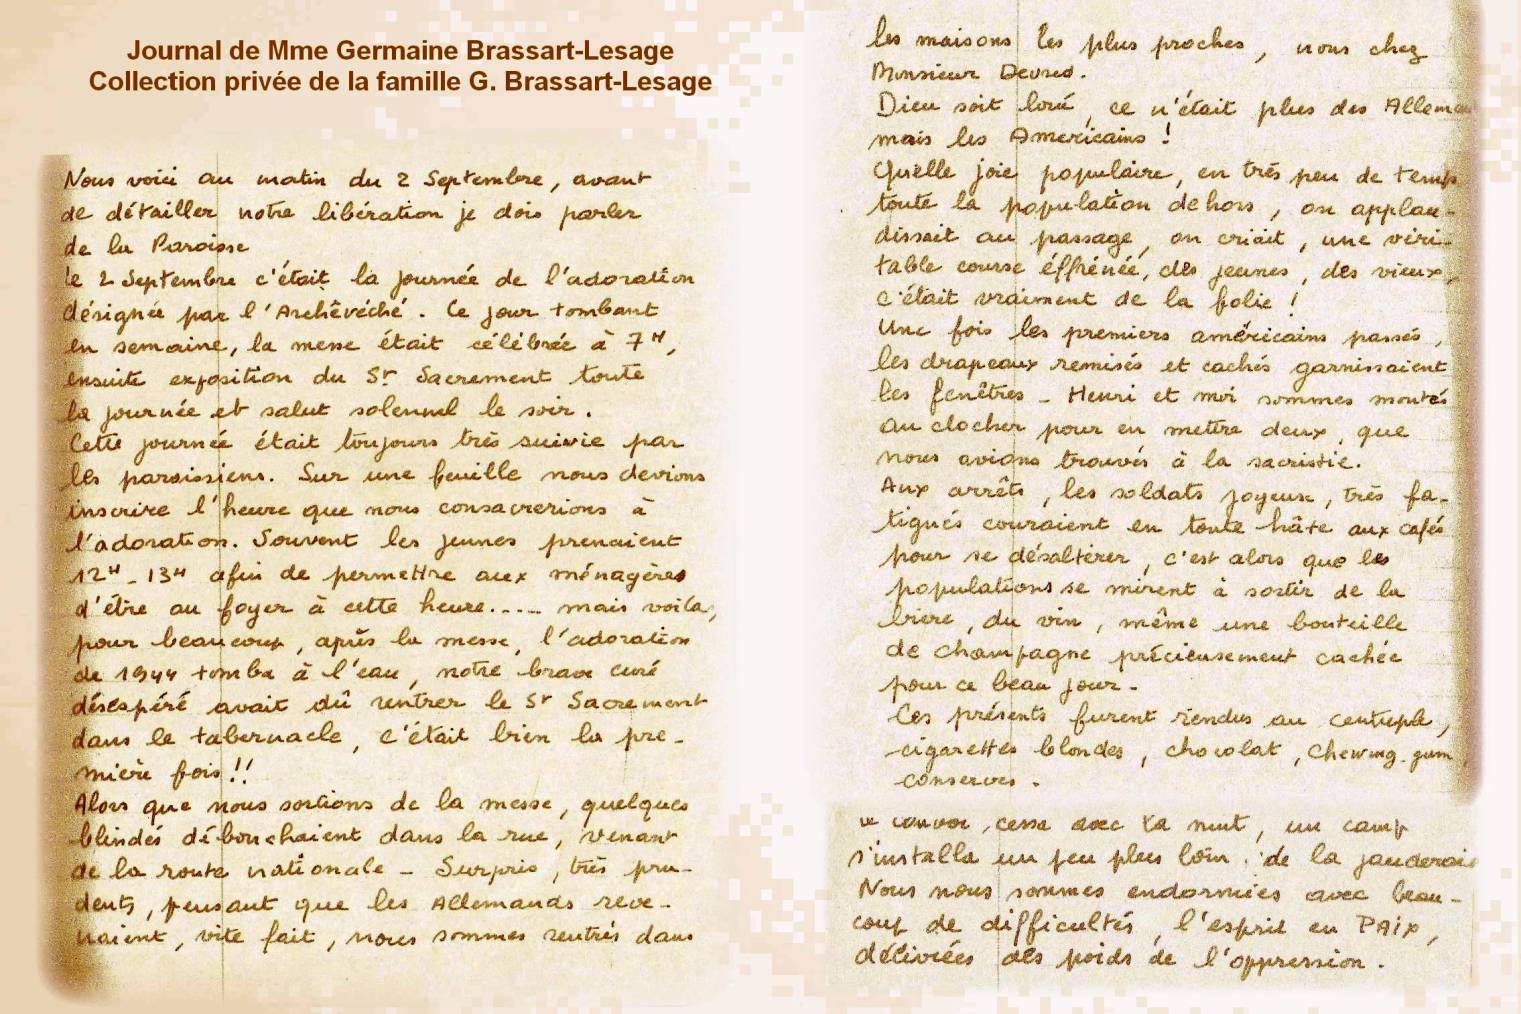 Journal de Mme Germaine Brassart-Lesage
Collection privée de la famille G. Brassart-Lesage
Nous voici au matin du 2 Septembre, avant
de détailler notre libération je dois parler
de la Paroisse
le 2 Septembre c'était la journée de l'adoration
désignée par l'Archêvéché. Ce jour tombant
en semaine, la messe était célébrée à 7H,
ensuite exposition du St Sacrement toute
la journée et salut solennel le soir.
Cette journée était toujours très suivie par
les paroissiens. Sur une feuille nous devions
inscrire l'heure que nous consacrerions à
l'adoration. Souvent les jeunes prenaient
12H-13H afin de permettre aux ménagères
d'être au foyer à cette heure..... mais voila,
pour beaucoup, après la messe, l'adoration
de 1944 tomba à l'eau, notre brave curé
désespéré avait dû rentrer le St Sacrement
dans le tabernacle, c'était bien la pre-
mière fois!!
Alors que nous sortions de la messe, quelques
blindés débouchaient dans la rue, venant
de la route nationale - Surpris, très pru-
dents, pensant que les Allemands reve-
naient, vite fait, nous sommes rentrés dans
les maisons les plus proches, nous chez
Monsieur Devred.
Dieu soit loué, ce n'était plus des Allemands
mais les Américains !
Quelle joie populaire, en très peu de temps
toute la population dehors, on applau-
dissait au passage, on criait, une véri-
table course éffrénée, des jeunes, des vieux,
c'était vraiment de la folie !
Une fois les premiers américains passés,
les drapeaux remisés et cachés garnissaient
les fenêtres - Henri et moi sommes montés
au clocher pour en mettre deux, que
nous avions trouvés à la sacristie.
Aux arrêts, les soldats joyeux, très fa-
tigués couraient en toute hâte aux cafés
pour se désaltérer, c'est alors que les
populations se mirent à sortir de la
bière, du vin, même une bouteille
de champagne précieusement cachée
pour ce beau jour.
Ces présents furent rendus au centuple,
cigarettes blondes, chocolat, chewing-gum
conserves.
cessa avec la nuit, un camp
s'installa un peu plus loin. de la
Nous nous sommes endormies avec beau-
coup de difficultés, l'esprit en PAix,
délivrées des poids de l'oppression.